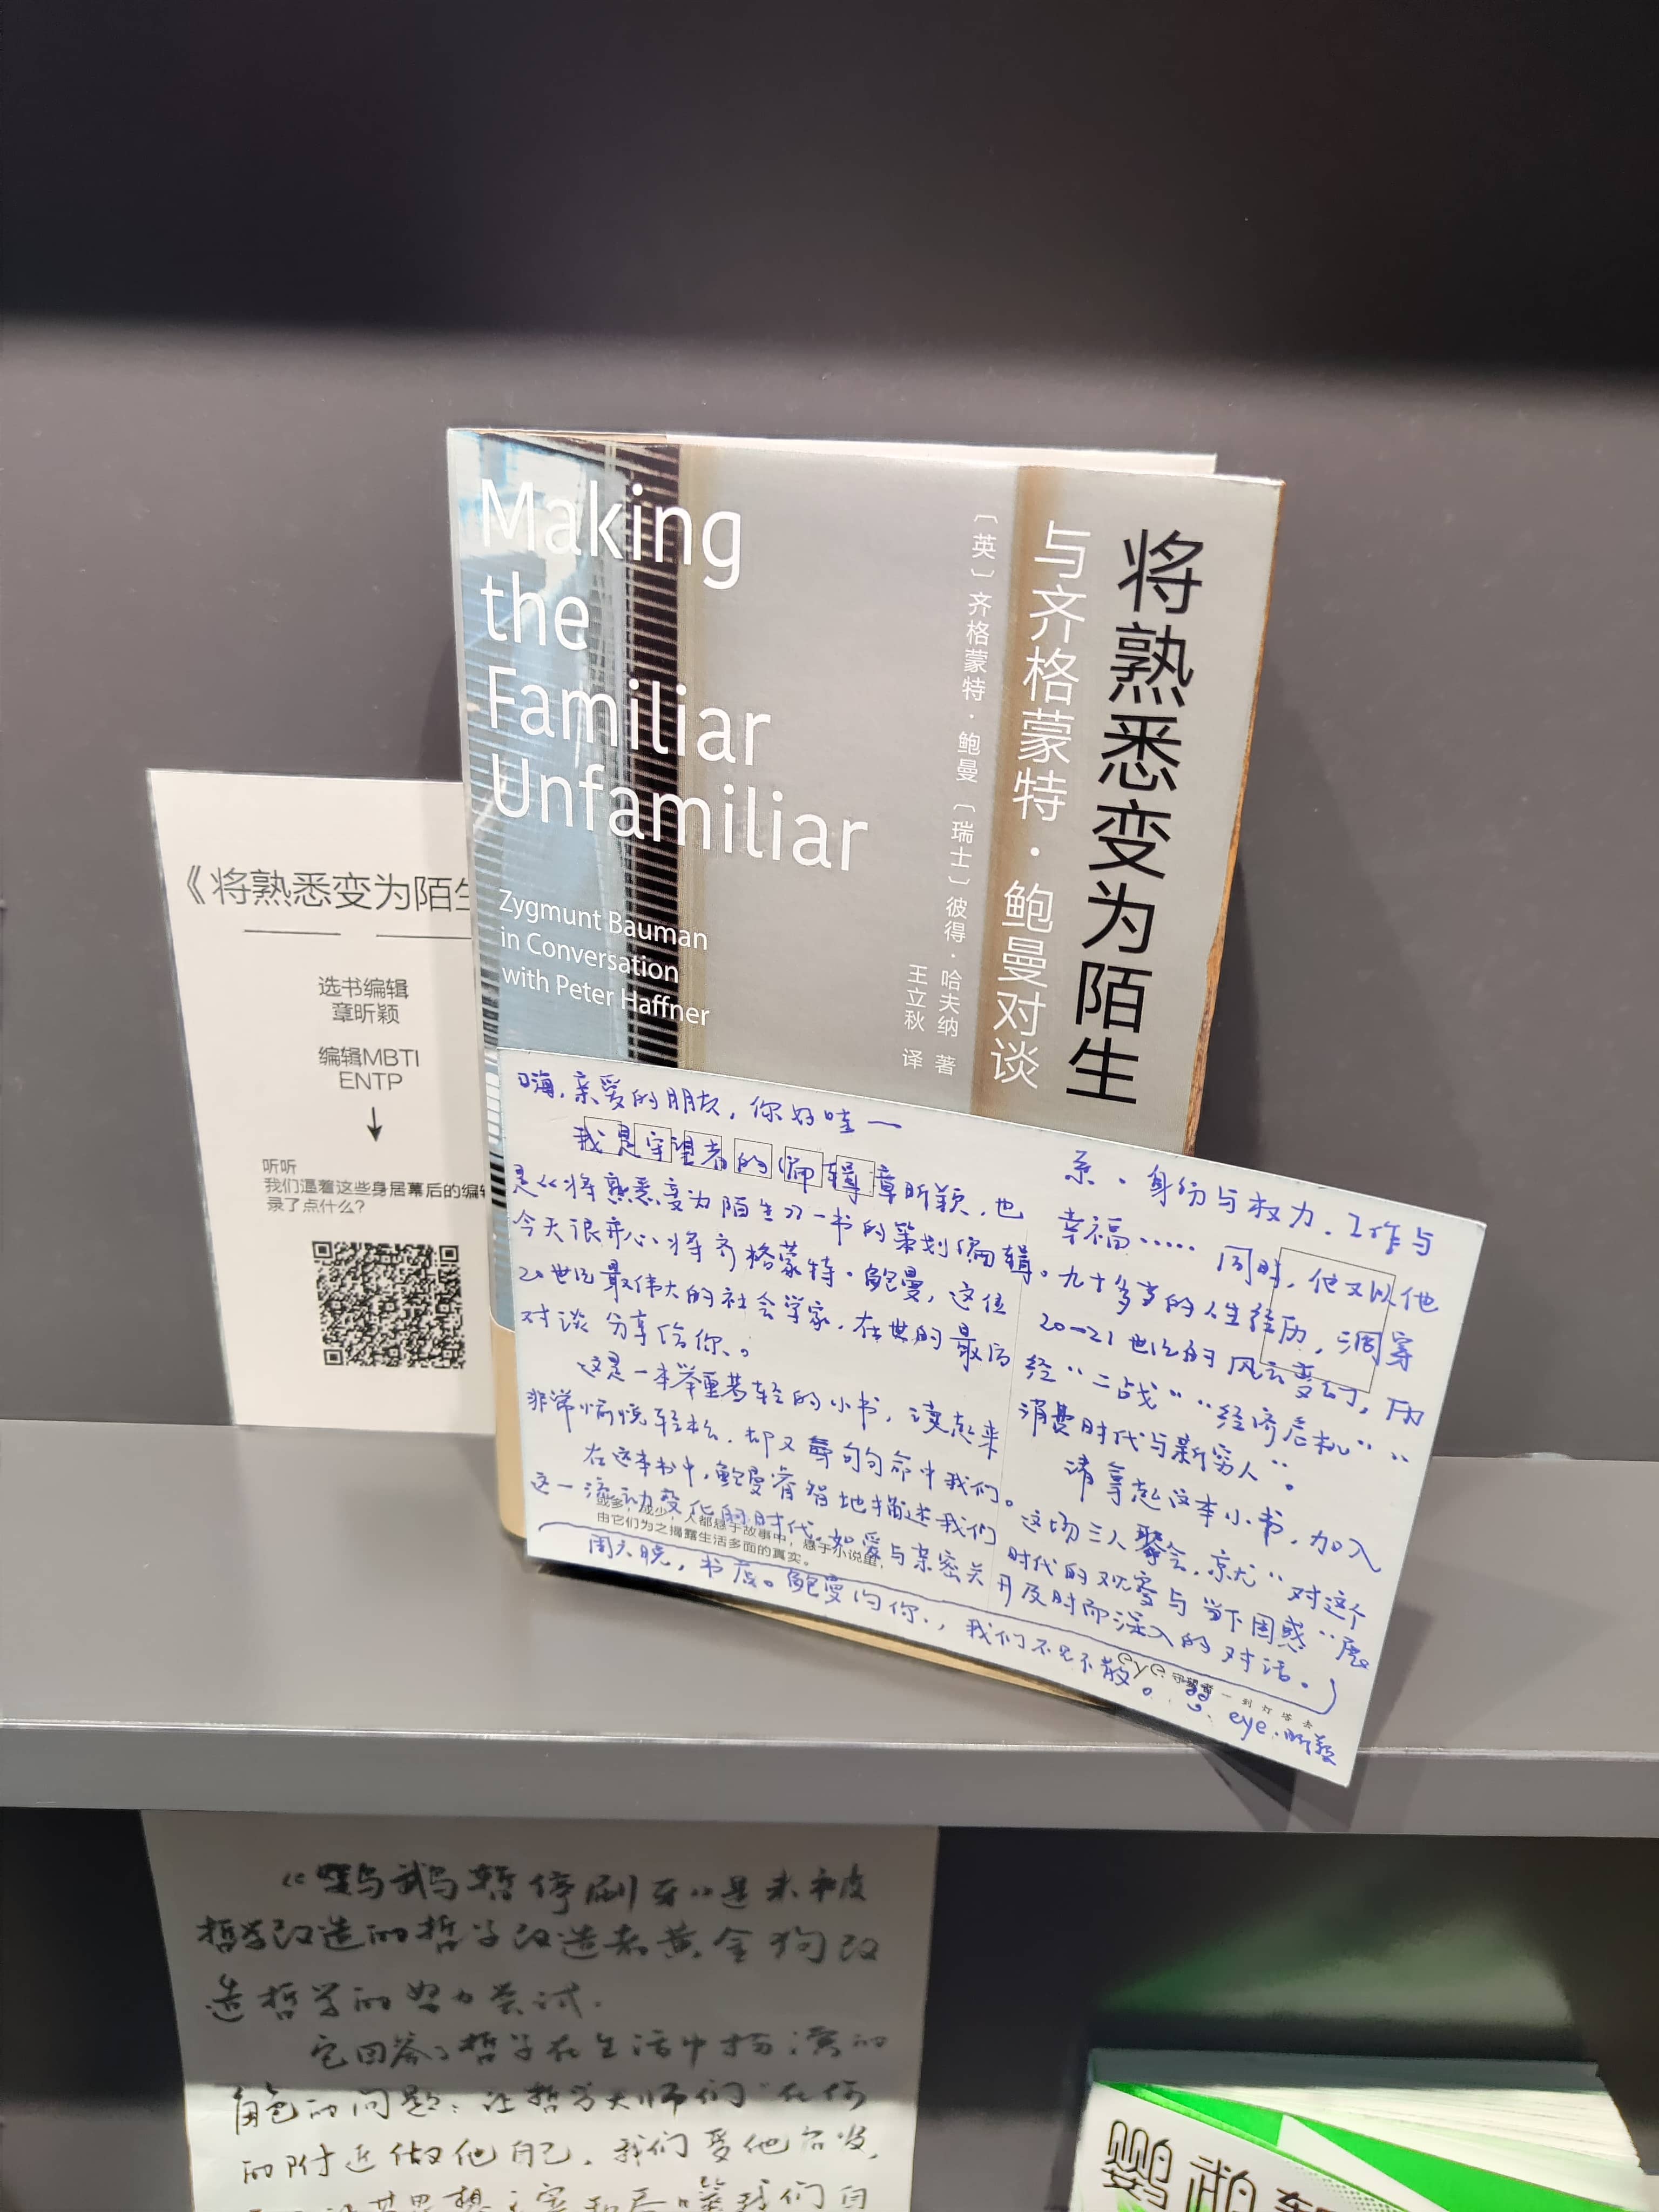 Making
the
Familiar
Unfamiliar
Zygmunt Bauman
in Conversation
with Peter Haffner
将熟悉变为陌生
与齐格蒙特·鲍曼对谈
〔英〕齐格蒙特·鲍曼 〔瑞士〕彼得·哈夫纳 著
王立秋 译
《将熟悉变为陌生
选书编辑
章昕颖
编辑MBTI
ENTP
听听
我们逼着这些身居幕后的编辑
录了点什么?
嗨,亲爱的朋友,你好哇一
我是守望者的编辑章昕颖,也
是《将熟悉变为陌生》一书的策划编辑。
今天很开心将齐格蒙特·鲍曼,这位
20世纪最伟大的社会学家,在世的最后
对谈分享给你。
这是一本举重若轻的小书,读起来
非常愉悦轻松,却又每句句命中我们。
在这本书中,鲍曼睿智地描述我们
这一流动变化的时代,如爱与亲密关
系、身份与权力、工作与
幸福……同时,他又以他
九十多岁的人生经历,洞穿
20—21世纪的风云变幻,历
经“二战”“经济危机”“
消费时代与新穷人”。
请拿起这本小书,加入
这场三人聚会,就“对这个
时代的观察与当下困惑”展
开及时而深入的对话。
或多,或少,人都悬于故事中,悬于小说里,
由它们为之揭露生活多面的真实。
周六晚,书店。鲍曼约你,我们不见不散。
eye 守望者 — 到灯塔去
eye.昕颖
《鹦鹉暂停刷牙》是未被
哲学改造的哲学改造者黄金狗改
造哲学的努力尝试.
它回答了哲学在生活中扮演的
角色的问题:让哲学大师们在你
的附近做他自己,我们受他启发,
鹦鹉